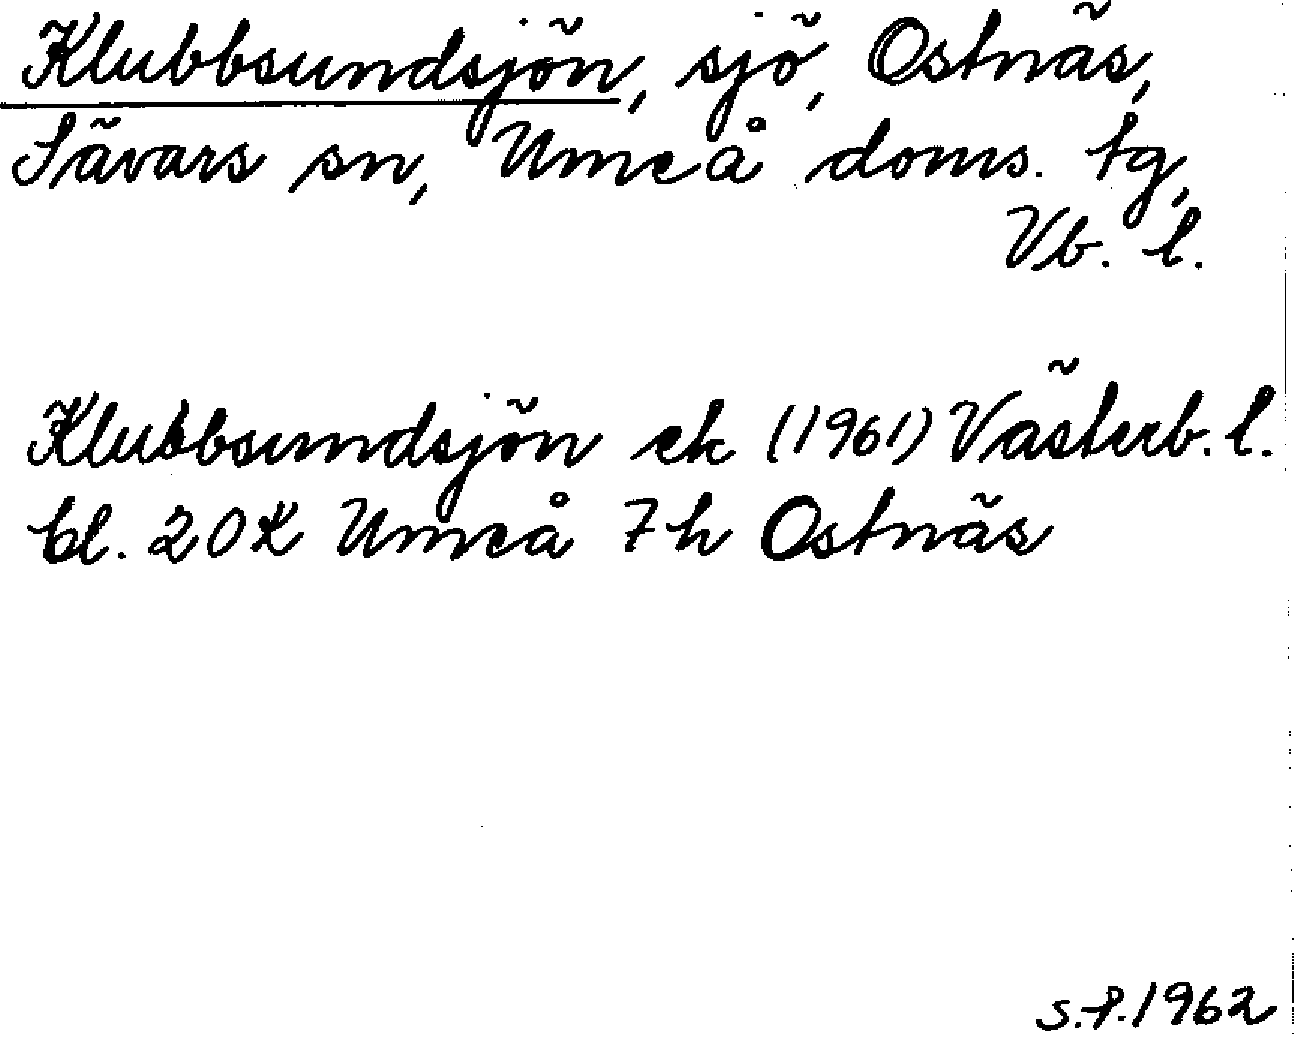 Klubbsundsjön, sjö, Ostnäs,
Sävars sn, Umeå doms. tg,
Vb. l.
Klubbsundsjön ek (1961) Västerb. l.
bl. 20K Umeå 7h Ostnäs
s.f. 1962